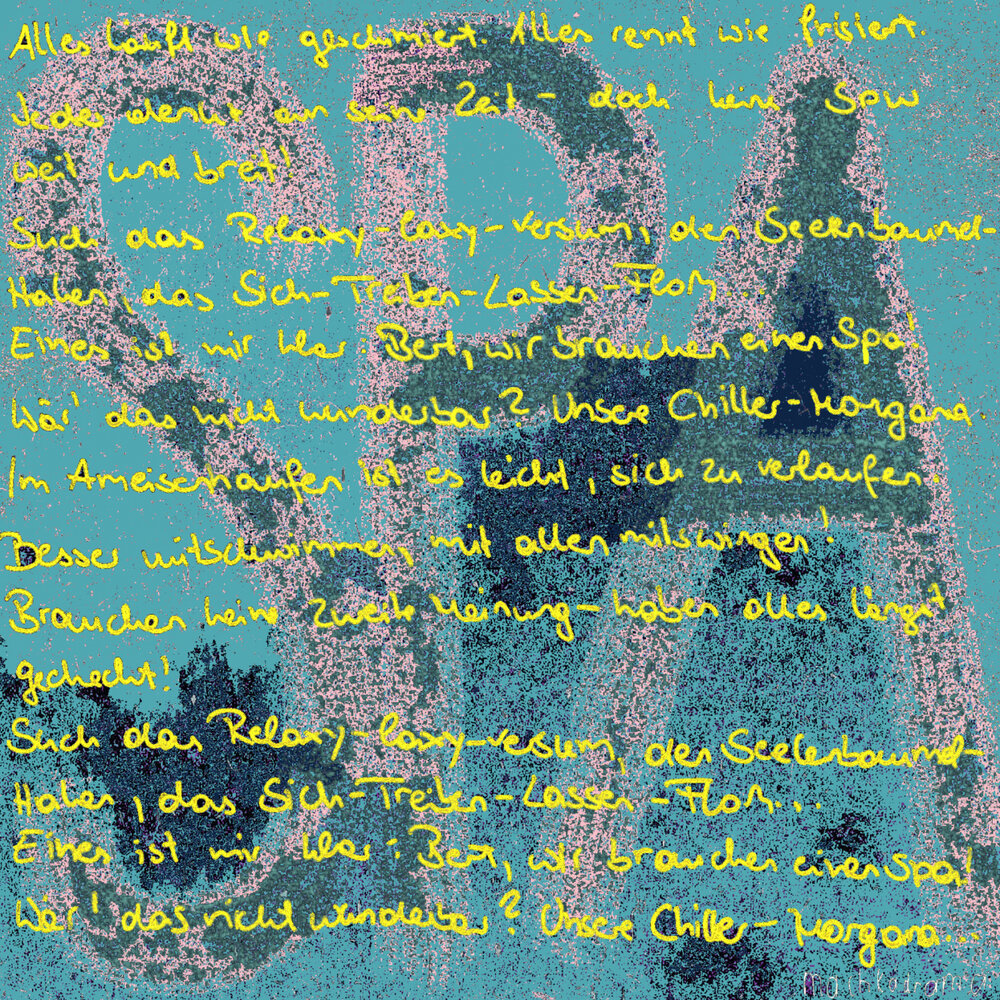 SPA
Alles läuft wie geschmiert. Alles rennt wie frisiert.
Jedes denkt an seine Zeit - doch keine Spur
weit und breit!
Such das Relaxy-laxy-versum, den Seelenbaumel-
Haken, das Sich-Treiben-Lassen-Floß...
Eines ist mir klar: Bert, wir brauchen einen Spa!
Wär' das nicht wunderbar? Unsere Chiller-Morgana.
Im Ameisenhaufen ist es leicht, sich zu verlaufen.
Besser mitschwimmen, mit allen mitswingen!
Brauchen keine zweite Meinung - haben alles längst
gecheckt!
Such das Relaxy-laxy-versum, den Seelenbaumel-
Haken, das Sich-Treiben-Lassen-Floß...
Eines ist mir klar: Bert, wir brauchen einen Spa!
Wär' das nicht wunderbar? Unsere Chiller-Morgana...